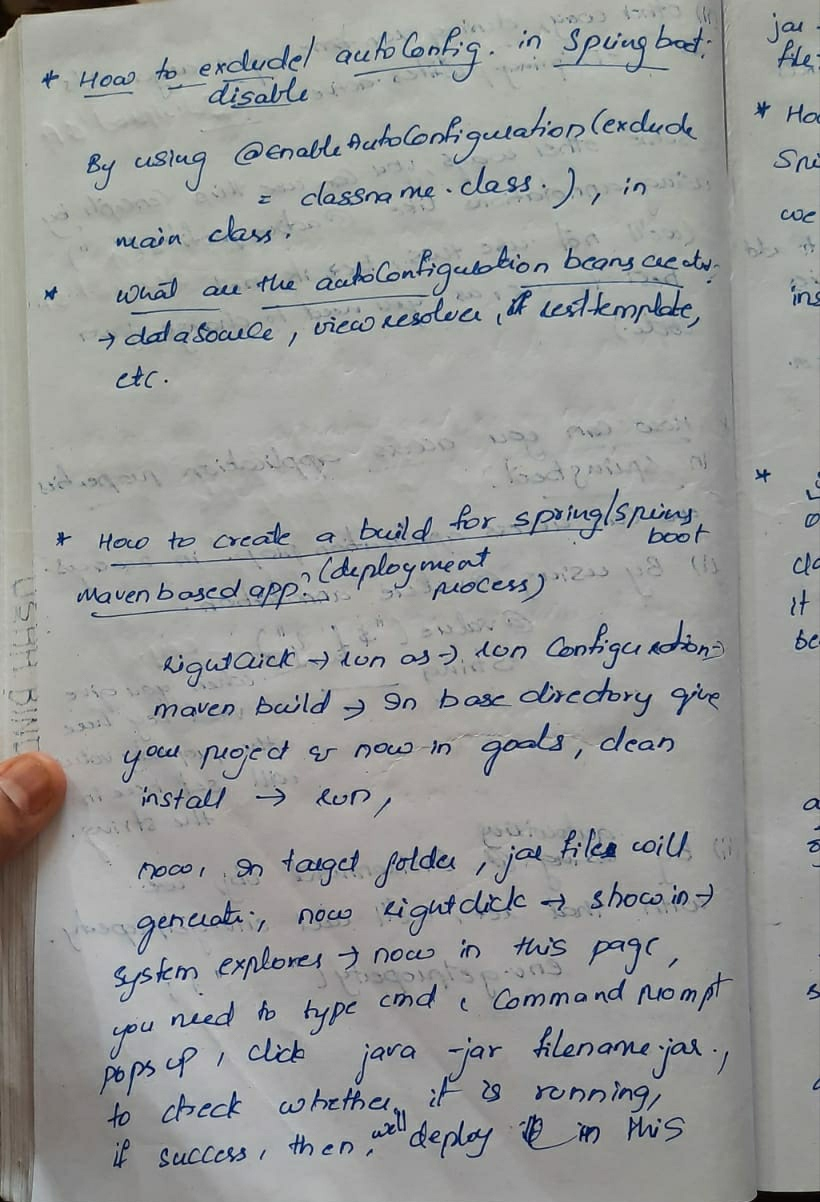 * How to exclude/ autoConfig. in Spring boot:
disable
By using @EnableAutoConfiguration(exclude
= classname.class.), in
main class.
* What are the autoConfiguration beans create:
→ dataSource, viewresolver, resttemplate,
etc.
* How to create a build for spring/spring
boot
maven based app? (deployment
process)
rightclick → run as → run Configuration →
maven build → In base directory give
your project & now in goals, clean
install → run,
now, In target folder, jar files will
generate:, now rightclick → show in →
system explorer → now in this page,
you need to type cmd, Command prompt
pops up, click java -jar filename.jar.,
to check whether it is running,
if success, then, we'll deploy in this
jar
file
* Ho
Spri
we
ins
*
cla
it
be